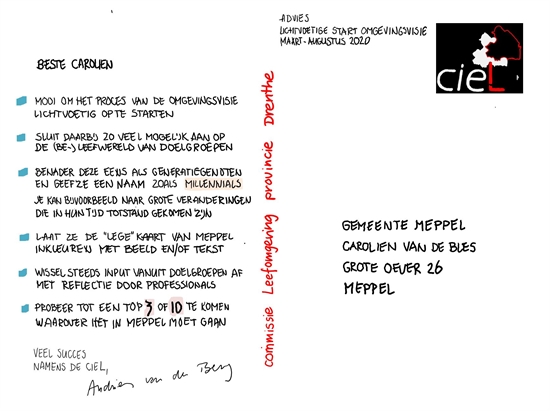 BESTE CAROLIEN
MOOI OM HET PROCES VAN DE OMGEVINGSVISIE
LICHTVOETIG OP TE STARTEN
SLUIT DAARBIJ ZO VEEL MOGELIJK AAN OP
DE (BE-) LEEFWERELD VAN DOELGROEPEN
BENADER DEZE EENS ALS GENERATIEGENOTEN
EN GEEF ZE EEN NAAM ZOALS MILLENNIALS
JE KAN BIJVOORBEELD NAAR GROTE VERANDERINGEN
DIE IN HUN TIJD TOTSTAND GEKOMEN ZIJN
LAAT ZE DE "LEGE" KAART VAN MEPPEL
INKLEUREN MET BEELD EN/OF TEKST
WISSEL STEEDS INPUT VANUIT DOELGROEPEN AF
MET REFLECTIE DOOR PROFESSIONALS
PROBEER TOT EEN TOP 3 OF 10 TE KOMEN
WAAROVER HET IN MEPPEL MOET GAAN
VEEL SUCCES
NAMENS DE CIEL,
Andries van de Berg
commissie Leefomgeving provincie Drenthe
ADVIES
LICHTVOETIGE START OMGEVINGSVISIE
MAART-AUGUSTUS 2020
cieL
GEMEENTE MEPPEL
CAROLIEN VAN DE BLES
GROTE OEVER 26
MEPPEL